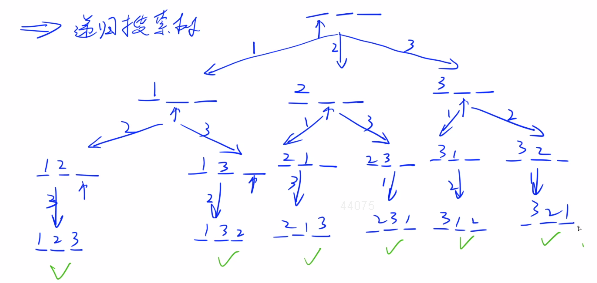 ⇒ 递归搜索树
_ _ _
1 2 3
1 _ _ 2 _ _ 3 _ _
2 3 1 3 1 2
1 2 _ 1 3 _ 2 1 _ 2 3 _ 3 1 _ 3 2 _
3 2 3 1 2
44075
1 2 3 1 3 2 2 1 3 2 3 1 3 1 2 3 2 1
✓ ✓ ✓ ✓ ✓ ✓